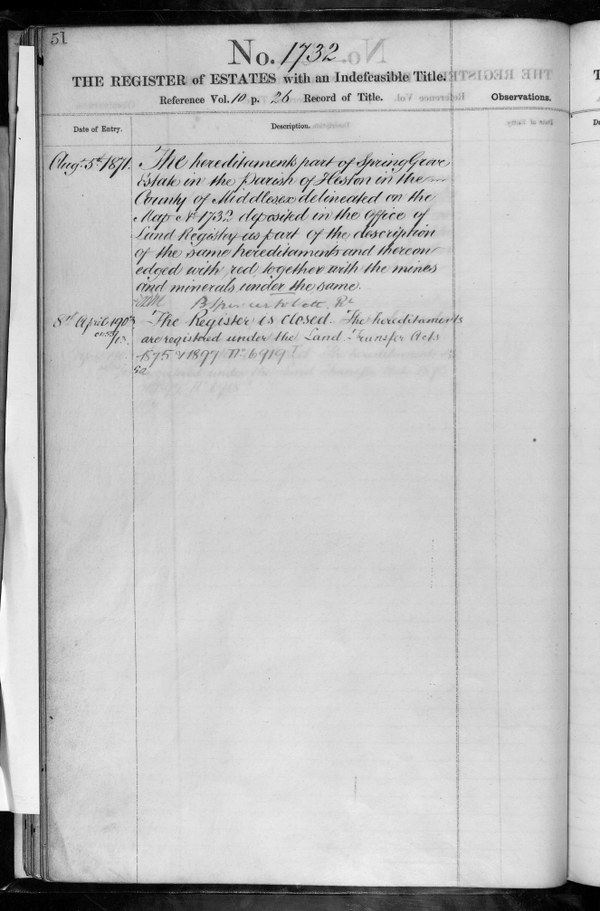 51
No. 1732
THE REGISTER of ESTATES with an Indefeasible Title.
Reference Vol. 10 p. 26 Record of Title.
Observations.
Date of Entry.
Description.
Augt. 5th 1871. The hereditaments part of Spring Grove
Estate in the Parish of Heston in the
County of Middlesex delineated on the
Map No 1732 deposited in the Office of
Land Registry as part of the description
of the same hereditaments and thereon
edged with red together with the mines
and minerals under the same.
8th April 1903 The Register is closed. The hereditaments
are registered under the Land Transfer Acts
1875 & 1897 No. 6919